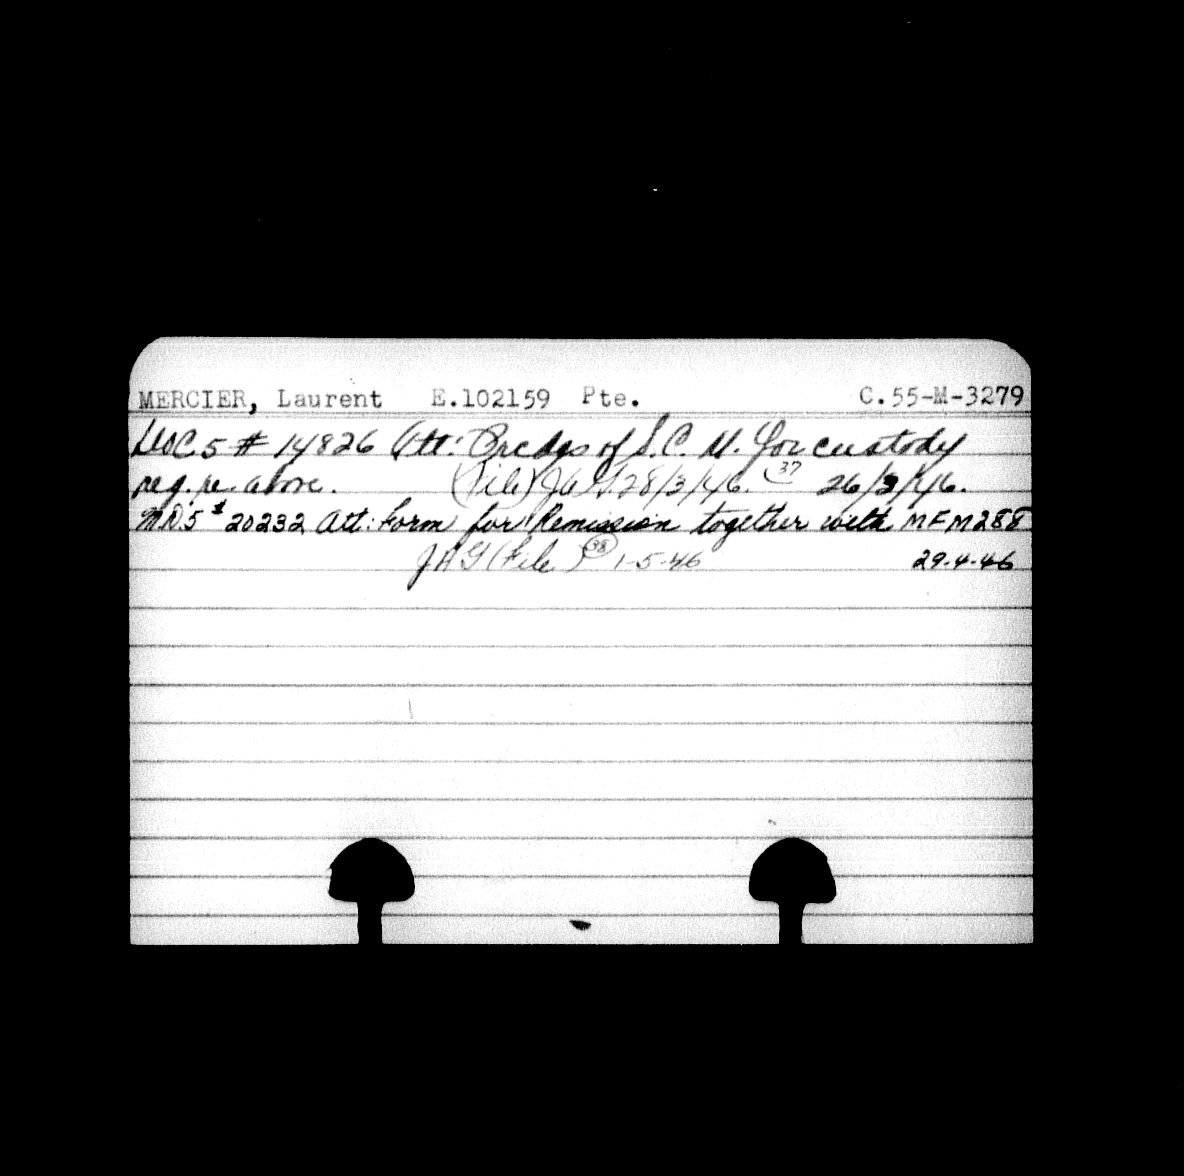 MERCIER, Laurent E.102159 Pte. C.55-M-3279
DOC 5 # 14826 Att: Prcdgs of S.C.M. for custody
reg. re. above. (File) JAG. 28/3/46. 37 26/3/46.
M.D.5 # 20232 Att: Form for Remission together with MFM288
JAG (File) 38 1-5-46 29-4-46